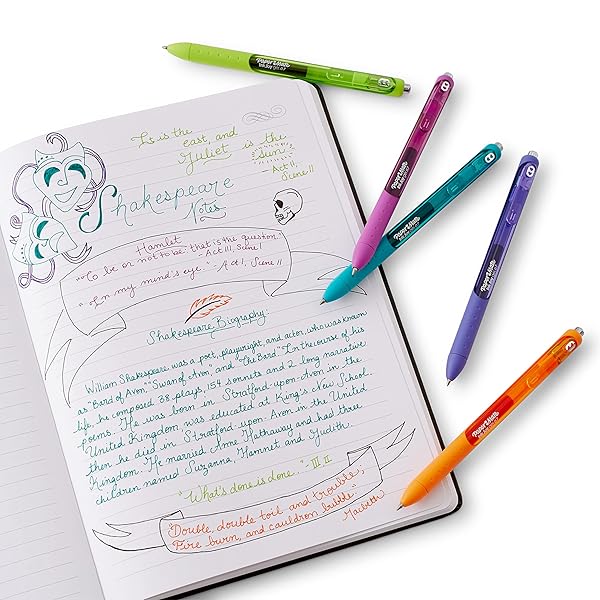 PaperMate
InkJoy gel 0.7
It is the
east, and
Juliet is the
sun
Act II,
Scene II
Shakespeare
Notes
Hamlet
"To be or not to be: that is the question."
- Act III, Scene I
"In my mind's eye" - Act 1, Scene II
Shakespeare Biography:
William Shakespeare was a poet, playwright, and actor, who was known
as "Bard of Avon" "Swan of Avon", and "The Bard". In the course of his
life, he composed 38 plays, 154 sonnets and 2 long narrative
poems. He was born in Stratford-upon-Avon in the
United Kingdom, was educated at King's New School.
then he died in Stratford-upon-Avon in the United
Kingdom. He married Anne Hathaway and had three
children named Suzanna, Hamnet and Judith.
"What's done is done." - III.II
"Double, double toil and trouble;
Fire burn, and cauldron bubble"
Macbeth
PaperMate
InkJoy
PaperMate
InkJoy
PaperMate
InkJoy
PaperMate
InkJoy